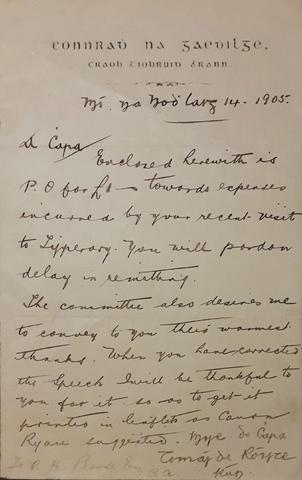 Connraḋ na Gaeḋilge,
Craoḃ Tiobruid Árann.
Mí na Nodlag 14. 1905.
A Ċara
Enclosed herewith is
P.O for £1 — towards expenses
incurred by your recent visit
to Tipperary. You will pardon
delay in remitting.
The committee also desires me
to convey to you their warmest
thanks. When you have corrected
the Speech I will be thankful to
you for it so as to get it
printed in leaflets as Canon
Ryan suggested. Mise do Ċara
Tomás de Róiste
To P. H. Esq
B A Rún.